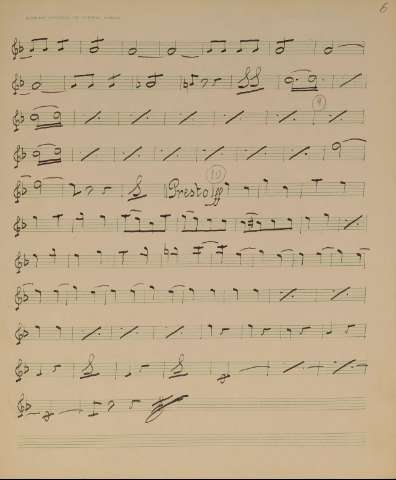 6
9
10
Presto ff